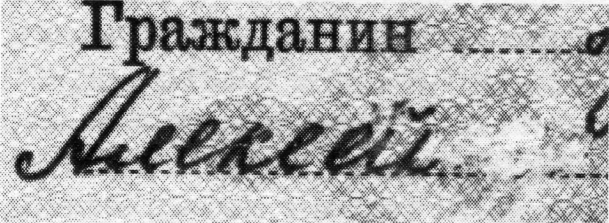 Гражданин
Алексей